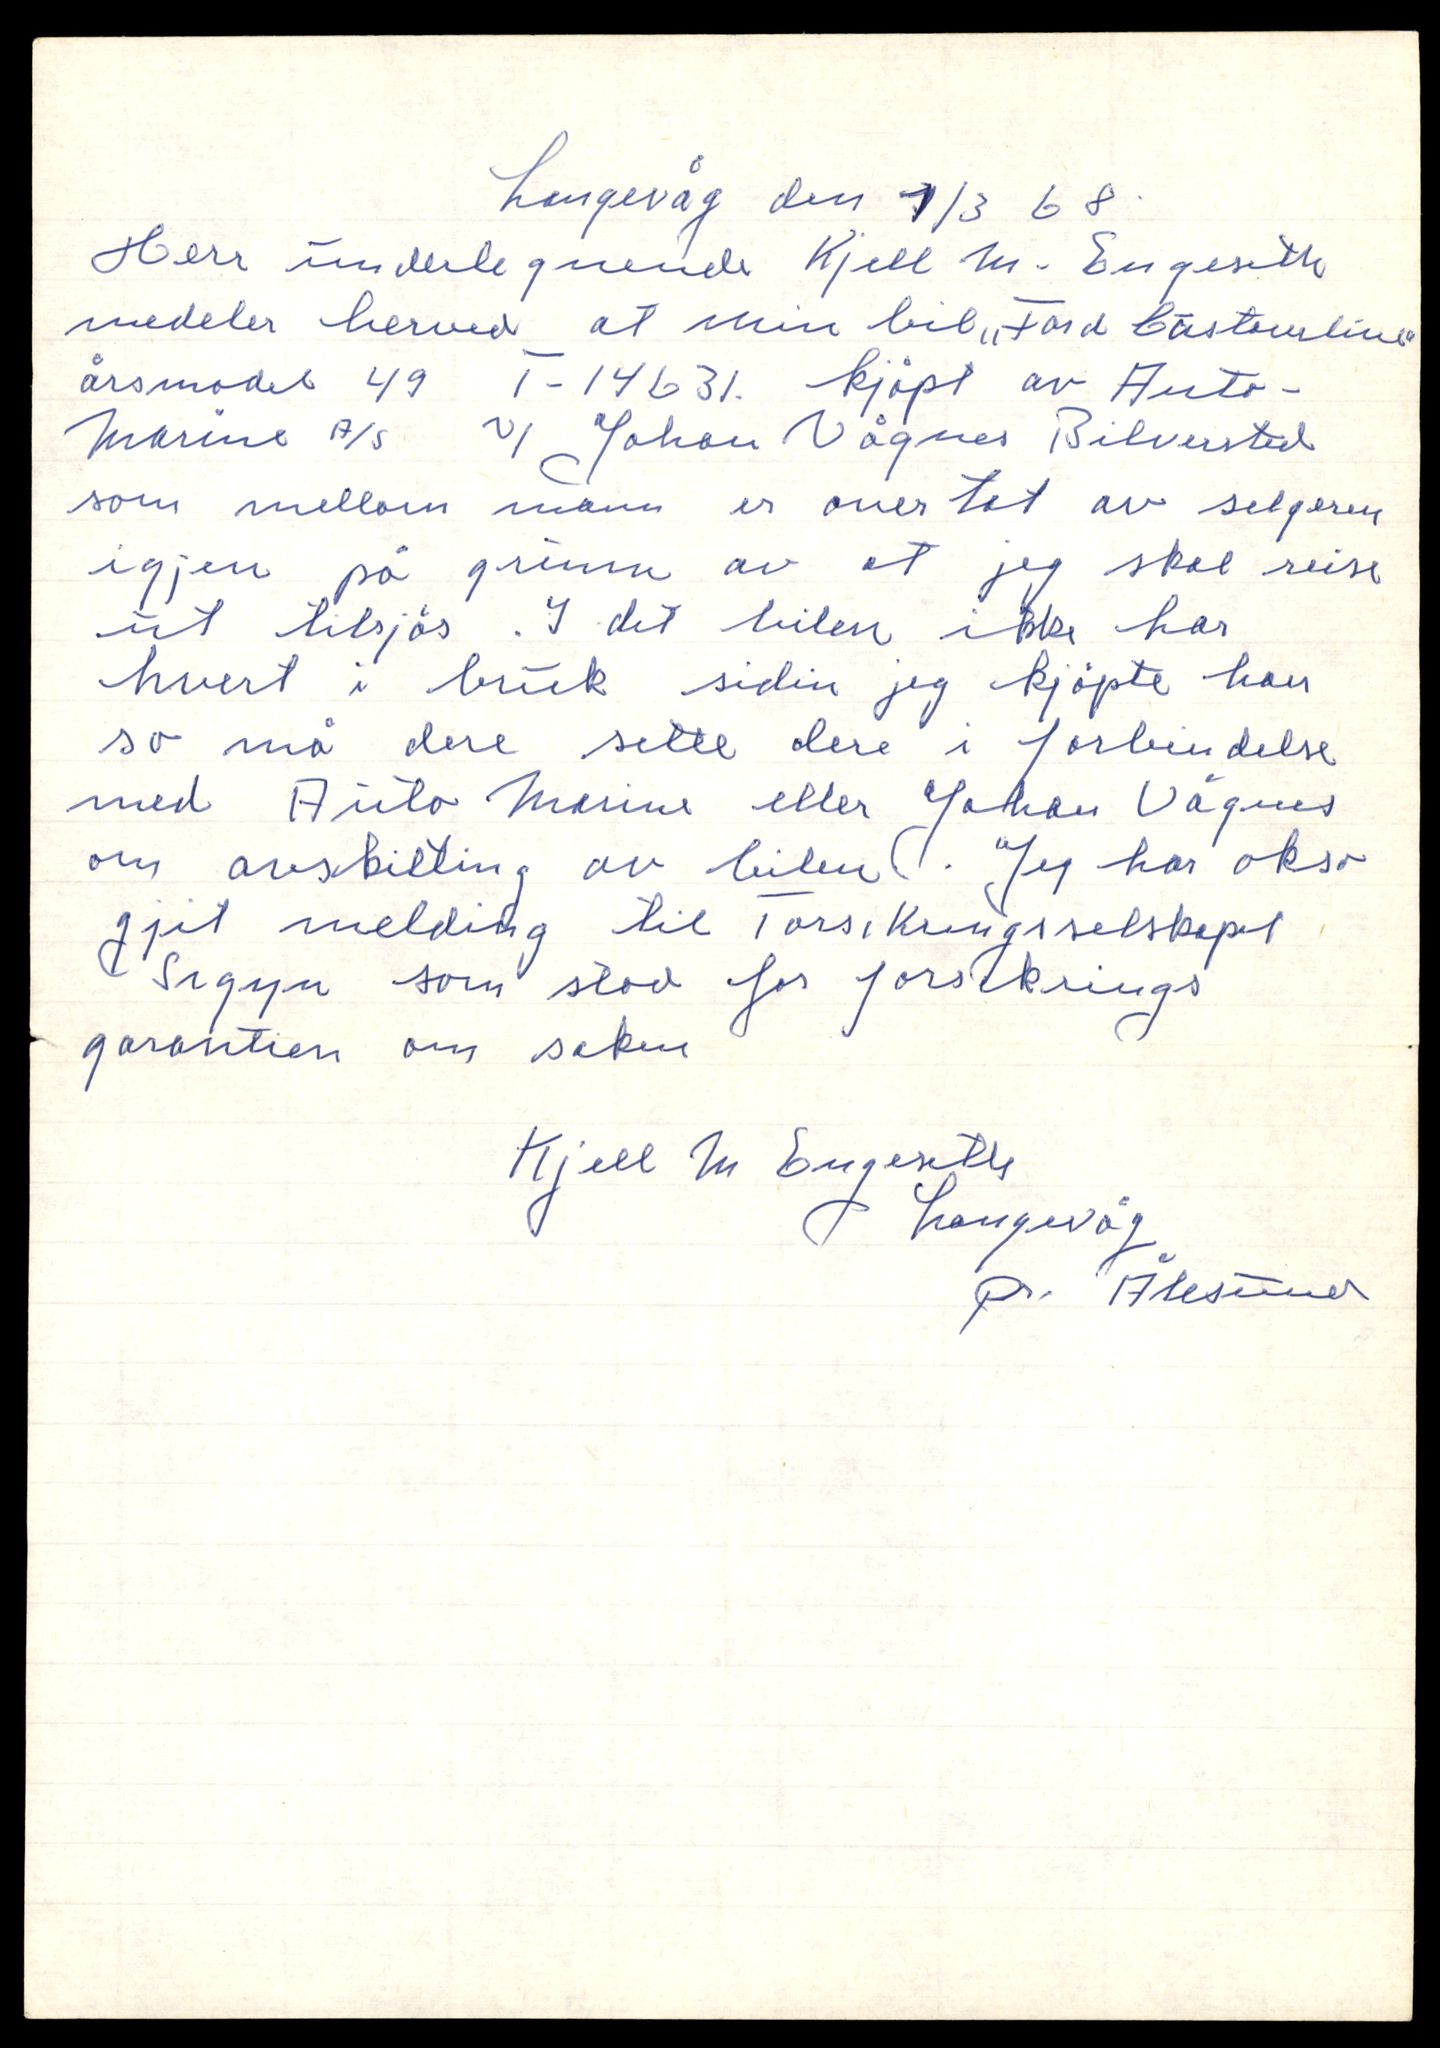 Langevåg den 1/3 68.
Herr underlegnende Kjell M. Engeseth
medeler herved at min bil „Ford Custouerline"
årsmodel 49 T-14631. kjöpt av Auto-
Marine A/S v/ Johan Vågnes Bilversted
som mellom mann er overtat av selgeren
igjen på grunn av at jeg skal reise
ut tilsjös. I det bilen ikke har
hvert i bruk siden jeg kjöpte han
so må dere sette dere i forbindelse
med Auto Marine eller Johan Vågnes
om avskilting av bilen. Jeg har okso
gjit melding til Forsikringsselskapet
Sigyn som stod for forsikrings
garantien om saken
Kjell M Engeseth
Langevåg
pr. Ålesund